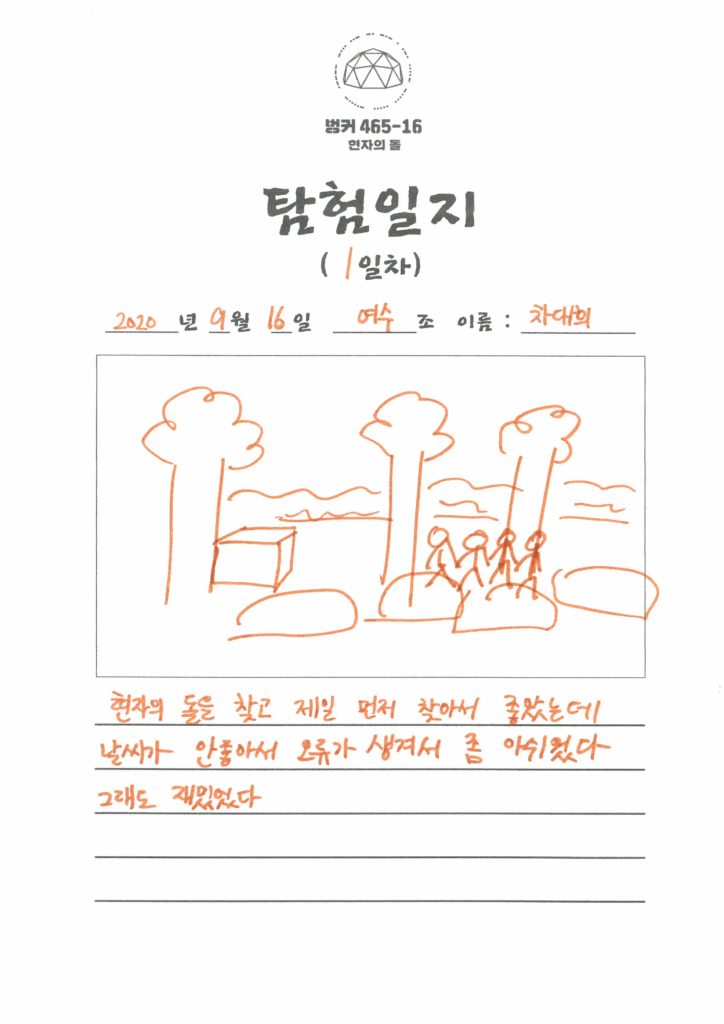 벙커 465-16
현자의 돌
탐험일지
( 1일차)
2020 년 9월 16일 여수 조 이름 : 차대희
현자의 돌을 찾고 제일 먼저 찾아서 좋았는데
날씨가 안좋아서 오류가 생겨서 좀 아쉬웠다
그래도 재밌었다